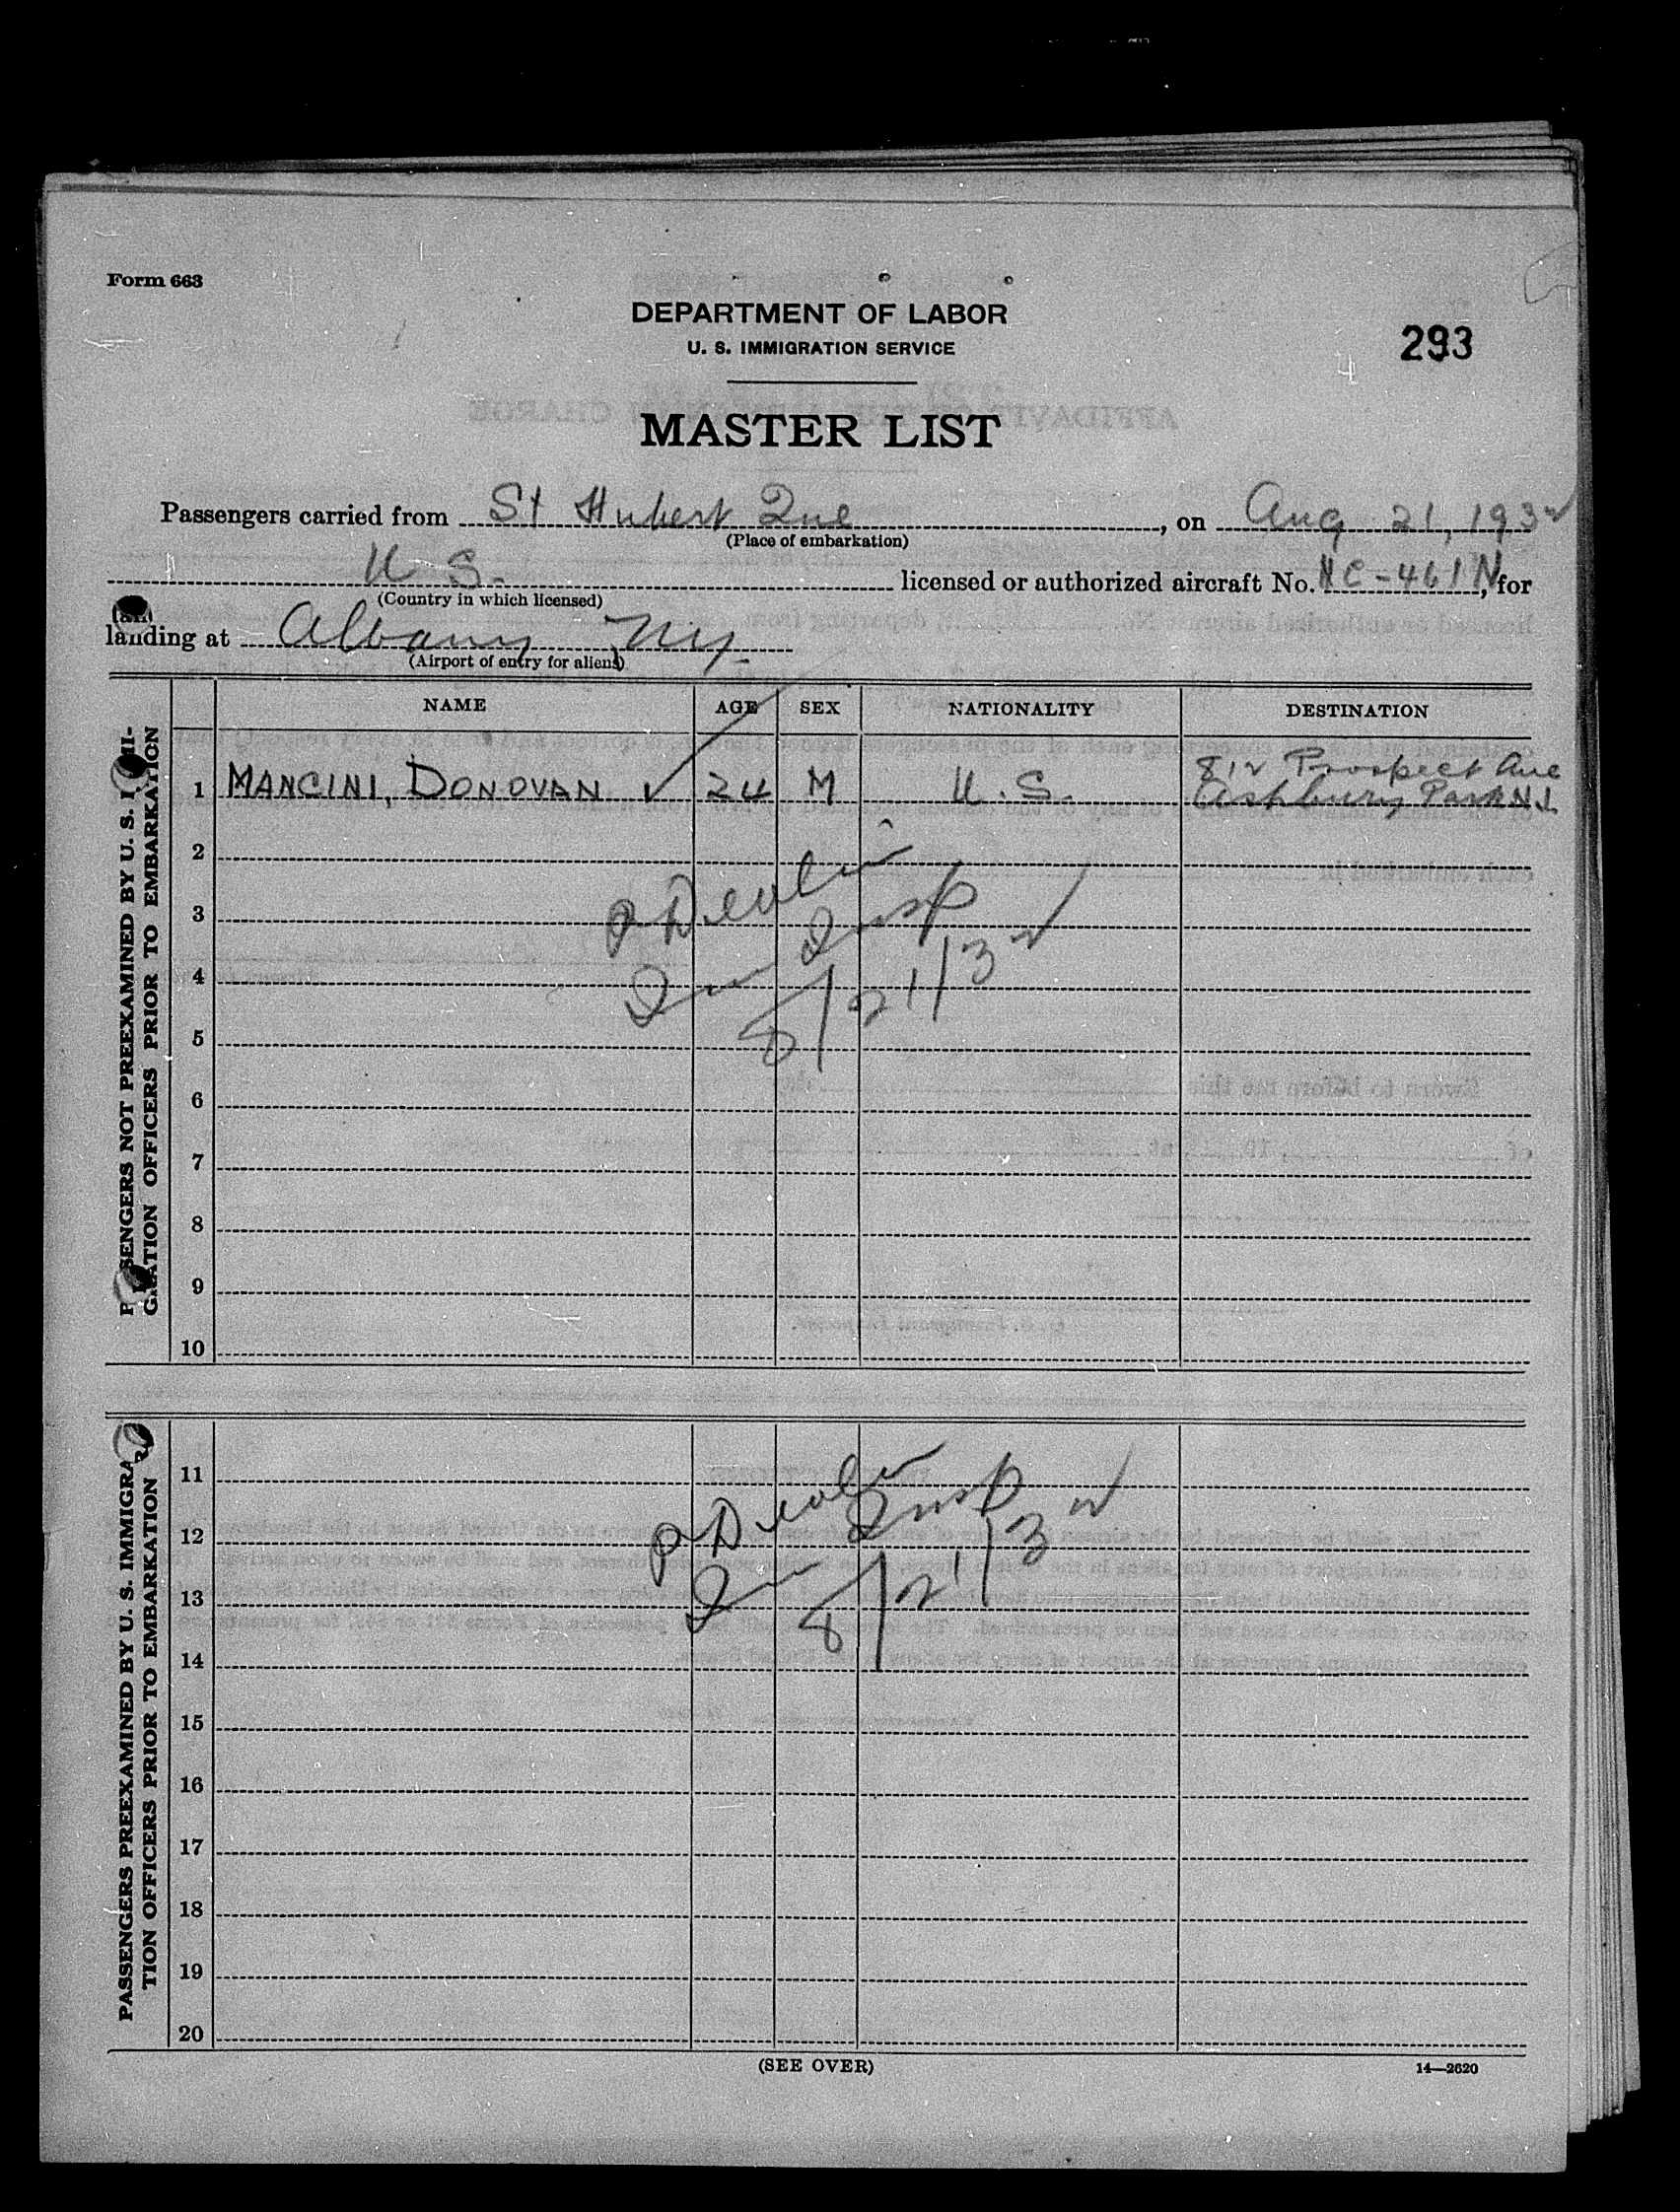 Form 663
DEPARTMENT OF LABOR
U. S. IMMIGRATION SERVICE
293
MASTER LIST
Passengers carried from St Hubert Que, on Aug 21, 1932
(Place of embarkation)
U S. licensed or authorized aircraft No. NC-461N, for
(Country in which licensed)
landing at Albany Ny.
(Airport of entry for aliens)
NAME AGE SEX NATIONALITY DESTINATION
PASSENGERS NOT PREEXAMINED BY U. S. IMMI-
GRATION OFFICERS PRIOR TO EMBARKATION
812 Prospect Ave
1 MANCINI, DONOVAN ✓ 24 M U.S. Ashbury Park NJ.
2
3
4
5
6
7
8
9
10
P Devlin
Imm Insp
8/21/32
PASSENGERS PREEXAMINED BY U. S. IMMIGRA-
TION OFFICERS PRIOR TO EMBARKATION
11
12
13
14
15
16
17
18
19
20
P Devlin
Imm Insp
8/21/32
(SEE OVER)
14—2620